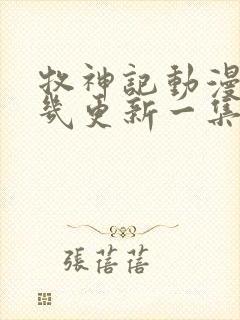 牧神記動漫
幾更新一集
張蓓蓓